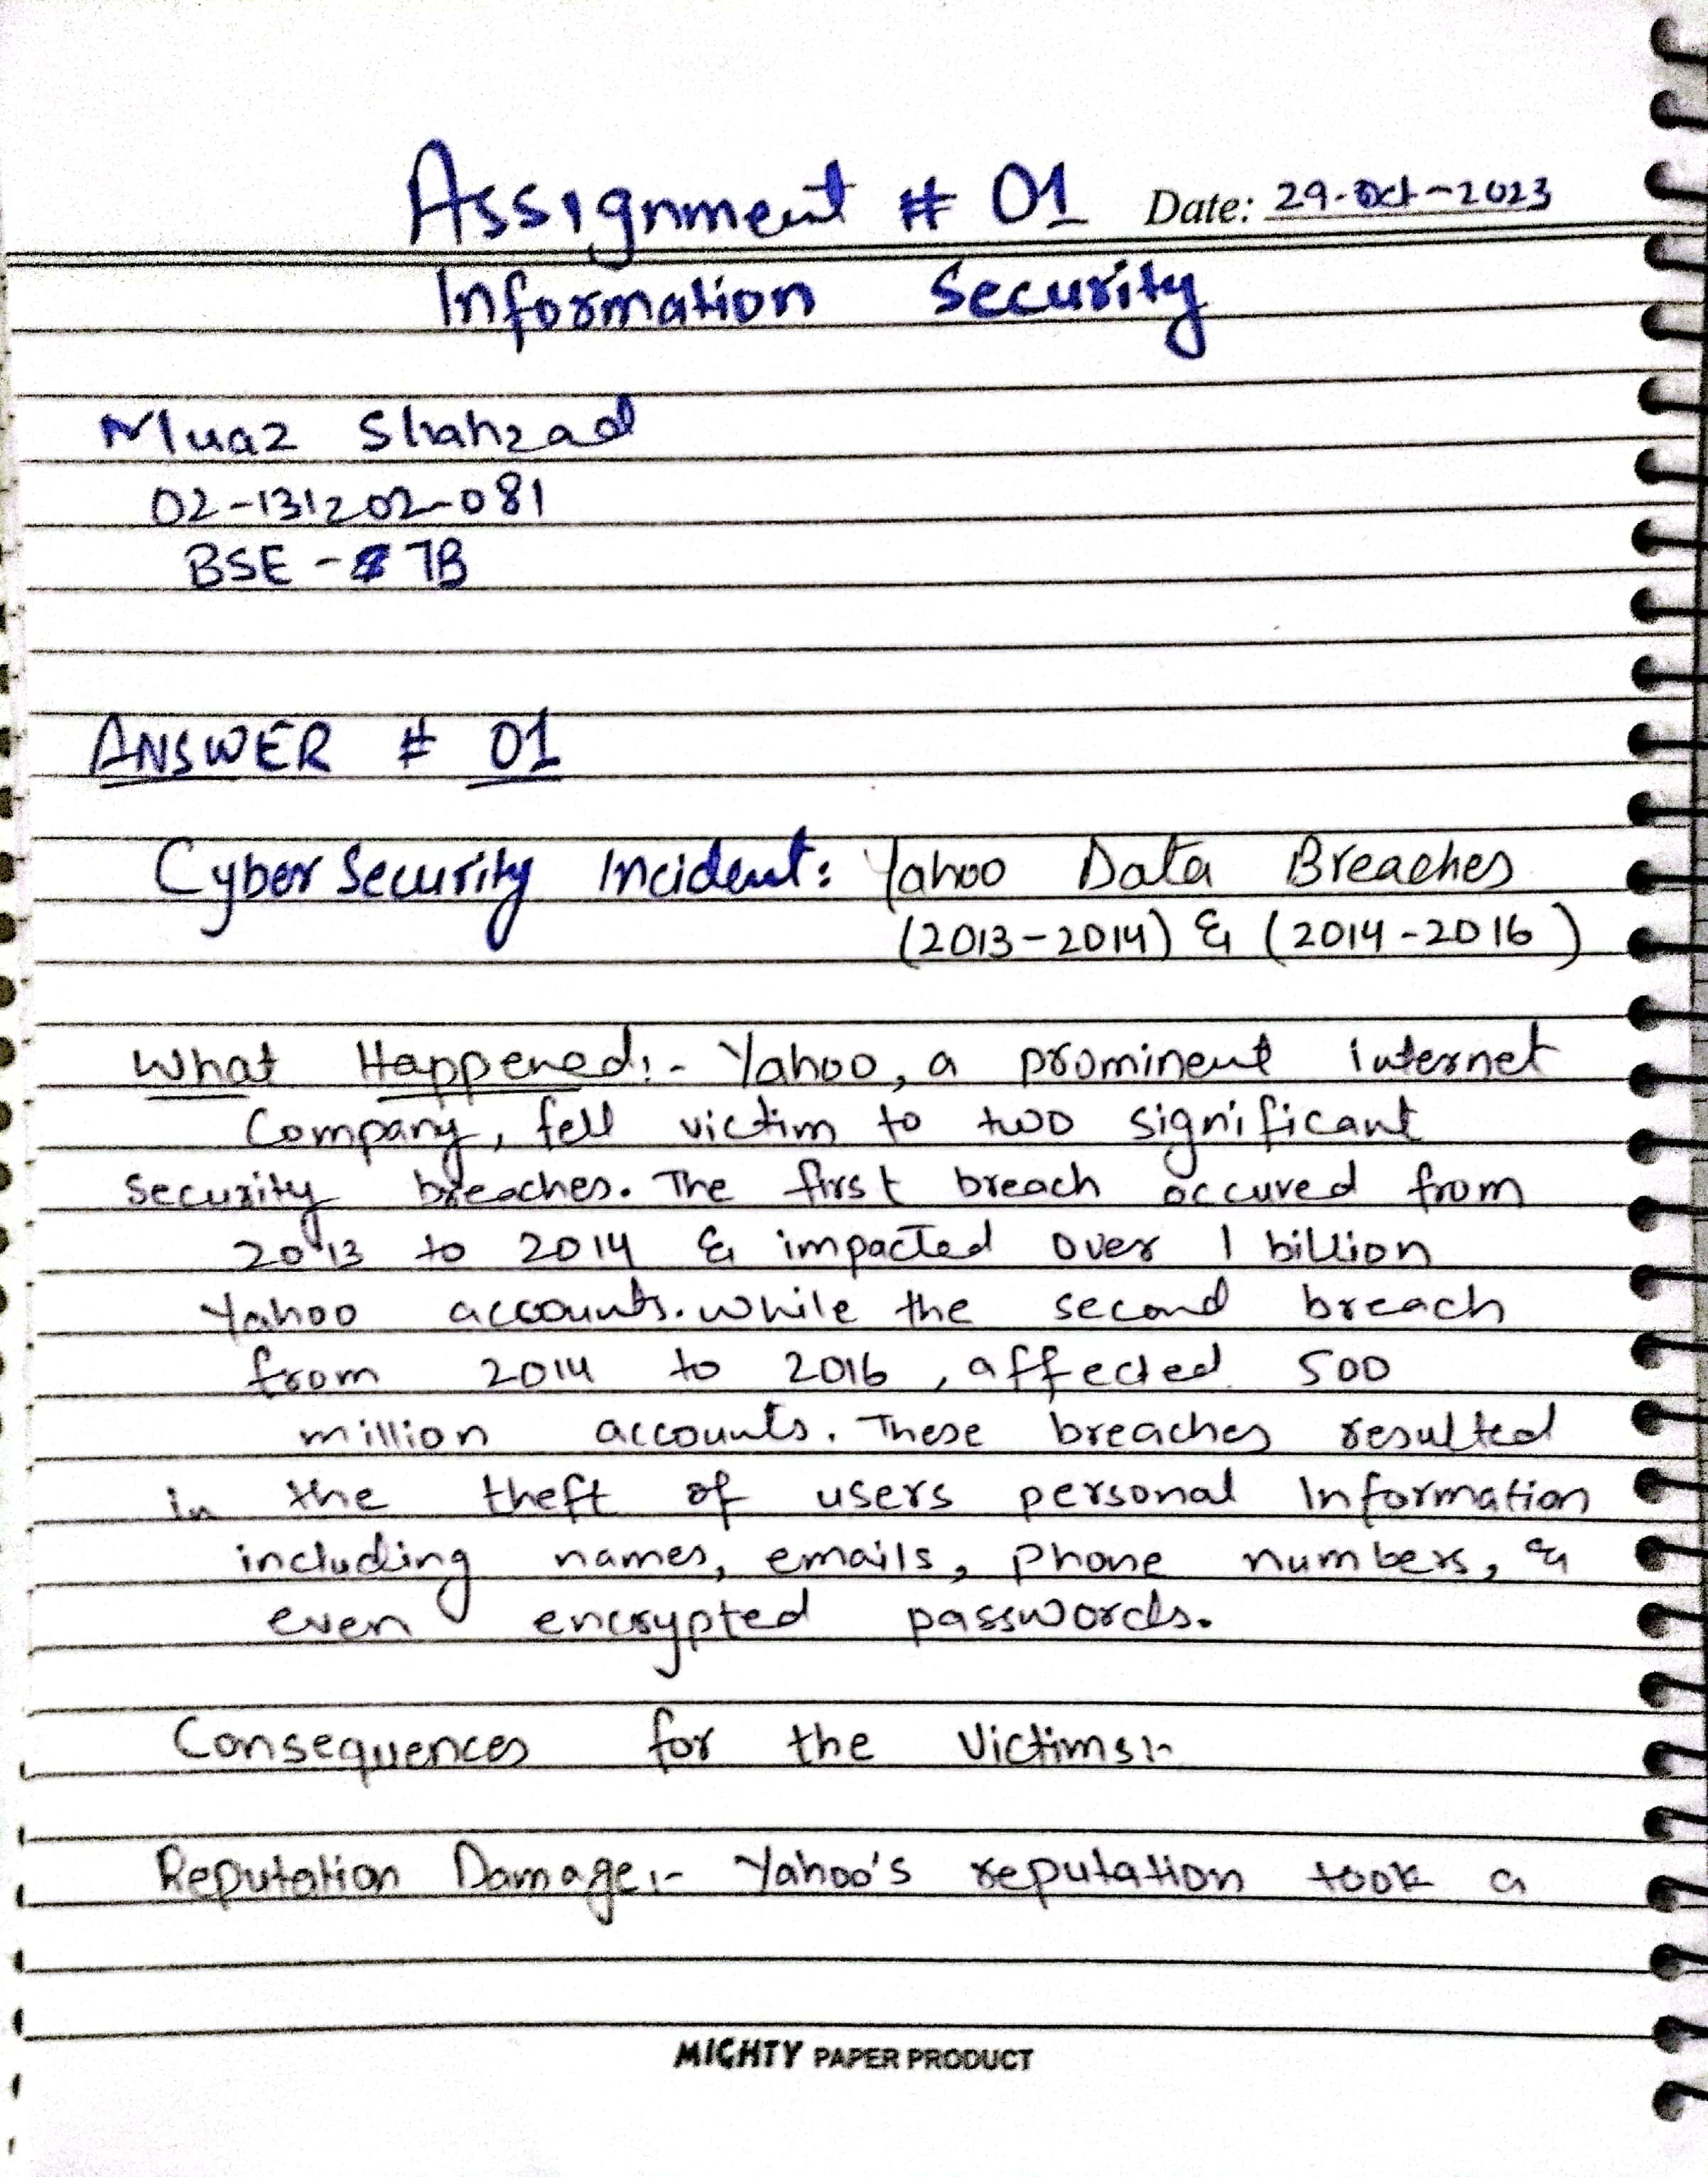 Assignment # 01 Date: 29-Oct-2023
Information Security
Muaz Shahzad
02-131202-081
BSE - 7B
ANSWER # 01
Cyber Security Incident: Yahoo Data Breaches
(2013-2014) & (2014-2016)
What Happened:- Yahoo, a prominent internet
Company, fell victim to two significant
security breaches. The first breach occured from
2013 to 2014 & impacted over 1 billion
Yahoo accounts. while the second breach
from 2014 to 2016, affected 500
million accounts. These breaches resulted
in the theft of users personal Information
including names, emails, phone numbers, &
even encrypted passwords.
Consequences for the Victims:-
Reputation Damage:- Yahoo's reputation took a
MIGHTY PAPER PRODUCT